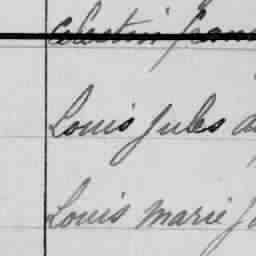 Celestin Jean
Louis Jules
Louis Marie